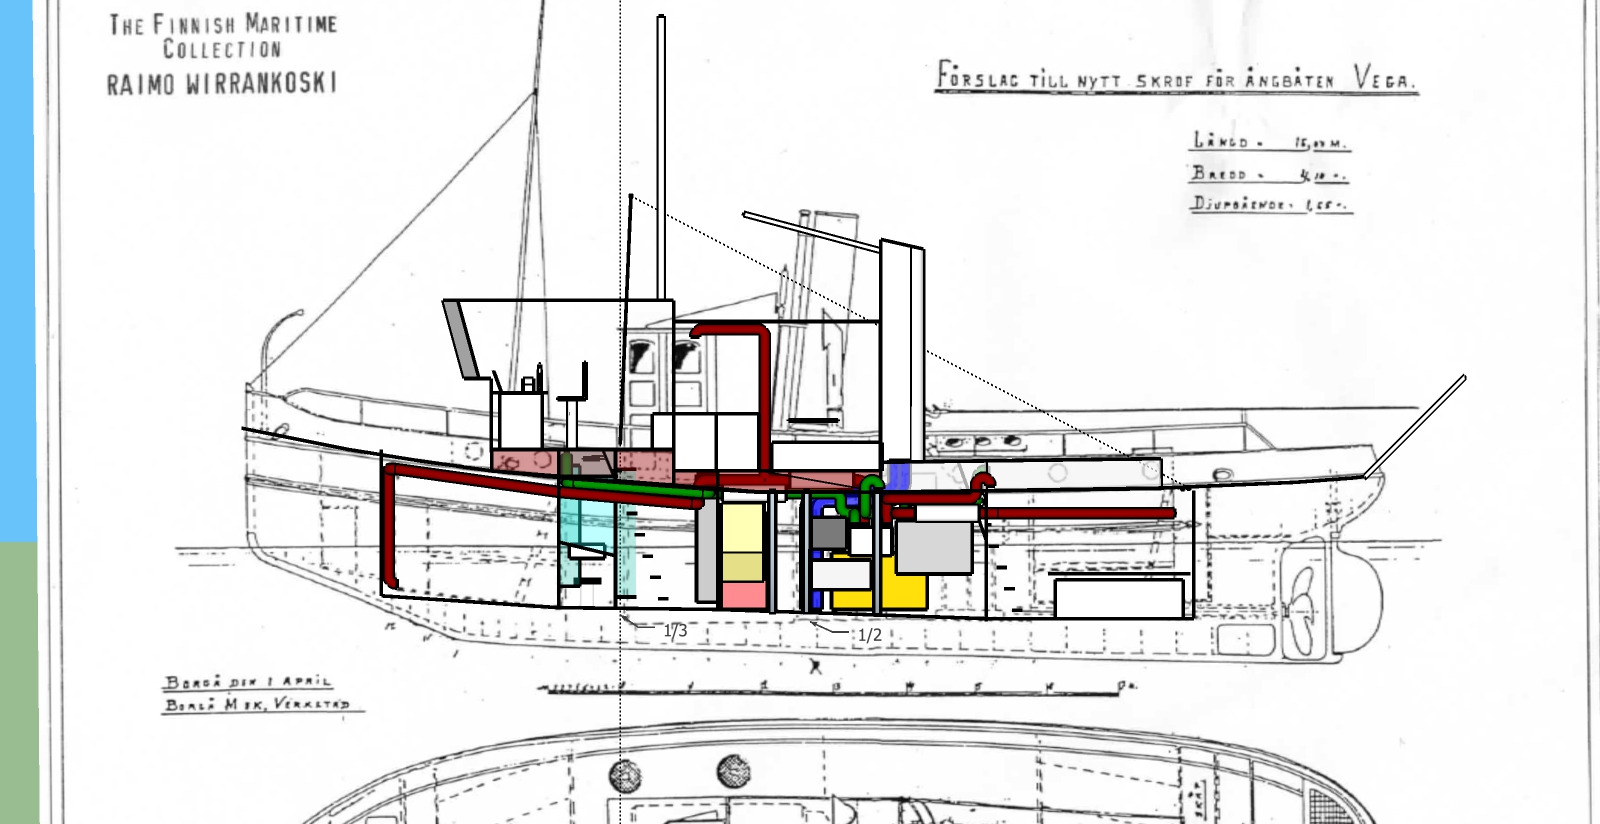 THE FINNISH MARITIME
COLLECTION
RAIMO WIRRANKOSKI
FÖRSLAG TILL NYTT SKROF FÖR ÅNGBÅTEN VEGA.
LÄNGD -
BREDD -
DJUPGÅENDE -
1/3
1/2
BORGÅ DEN 1 APRIL
BORGÅ MEK. VERKSTAD